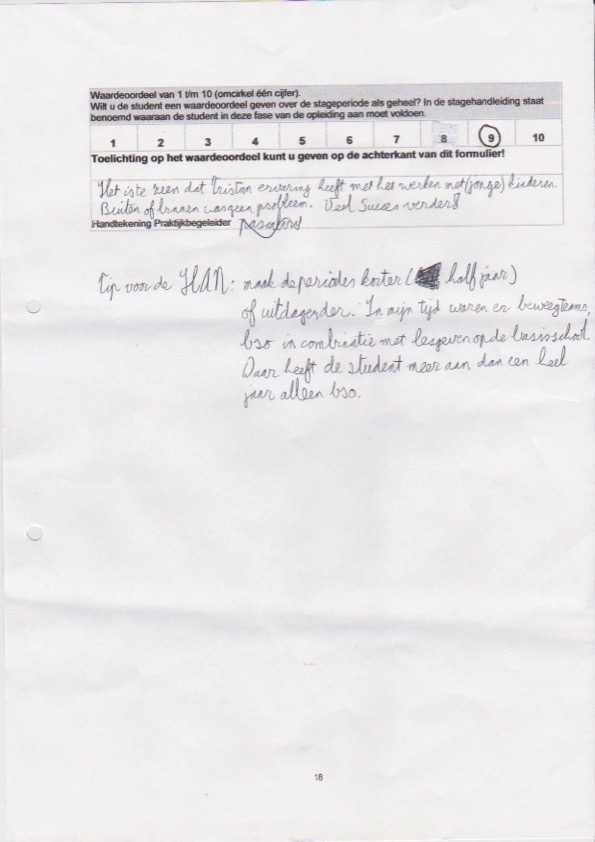 Waardeoordeel van 1 t/m 10 (omcirkel één cijfer).
Wilt u de student een waardeoordeel geven over de stageperiode als geheel? In de stagehandleiding staat
benoemd waaraan de student in deze fase van de opleiding aan moet voldoen.
1 2 3 4 5 6 7 8 9 10
Toelichting op het waardeoordeel kunt u geven op de achterkant van dit formulier!
Het is te zien dat Tristan ervaring heeft met het werken met (jonge) kinderen.
Buiten of binnen was geen probleem. Veel succes verder!
Handtekening Praktijkbegeleider
Tip voor de HAN: maak de periodes korter ( half jaar)
of uitdagender. In mijn tijd waren er beweegteams,
bso in combinatie met lesgeven op de basisschool.
Daar heeft de student meer aan dan een heel
jaar alleen bso.
18